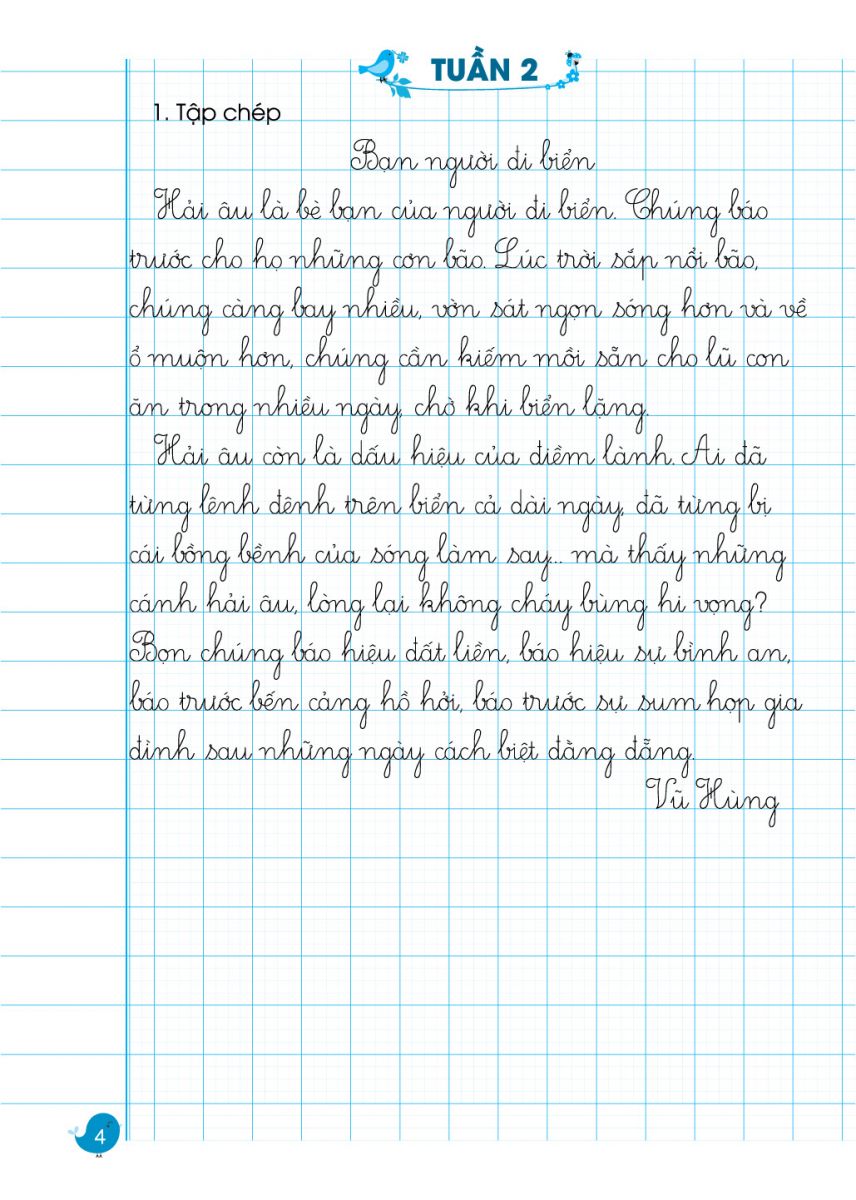 TUẦN 2
1. Tập chép
Bạn người đi biển
Hải âu là bè bạn của người đi biển. Chúng báo
trước cho họ những cơn bão. Lúc trời sắp nổi bão,
chúng càng bay nhiều, vờn sát ngọn sóng hơn và về
ổ muộn hơn, chúng cần kiếm mồi sẵn cho lũ con
ăn trong nhiều ngày, chờ khi biển lặng.
Hải âu còn là dấu hiệu của điềm lành. Ai đã
từng lênh đênh trên biển cả dài ngày, đã từng bị
cái bồng bềnh của sóng làm say... mà thấy những
cánh hải âu, lòng lại không cháy bùng hi vọng?
Bọn chúng báo hiệu đất liền, báo hiệu sự bình an,
báo trước bến cảng hồ hởi, báo trước sự sum họp gia
đình sau những ngày cách biệt đằng đẵng.
Vũ Hùng
4